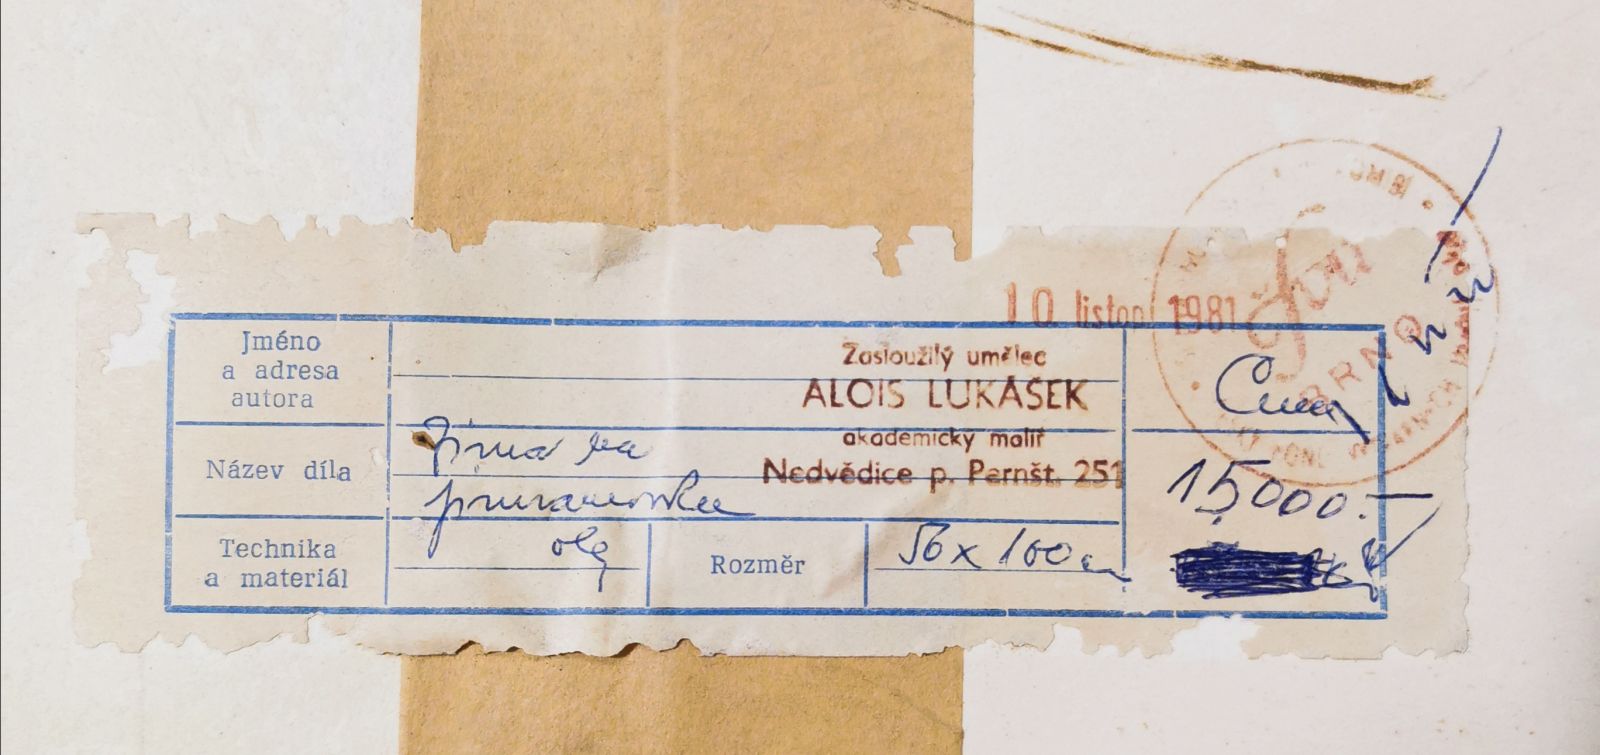 10 listop 1981
Jméno
a adresa
autora
Zasloužilý umělec
ALOIS LUKÁŠEK
akademický malíř
Nedvědice p. Pernšt. 251
Cena
Název díla
Zima na
15,000.—
Technika
a materiál
olej
Rozměr
56 x 100 cm
BRNO